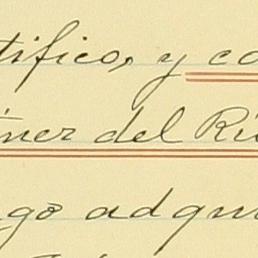 tífico, y co
ner del Rí
go adqui